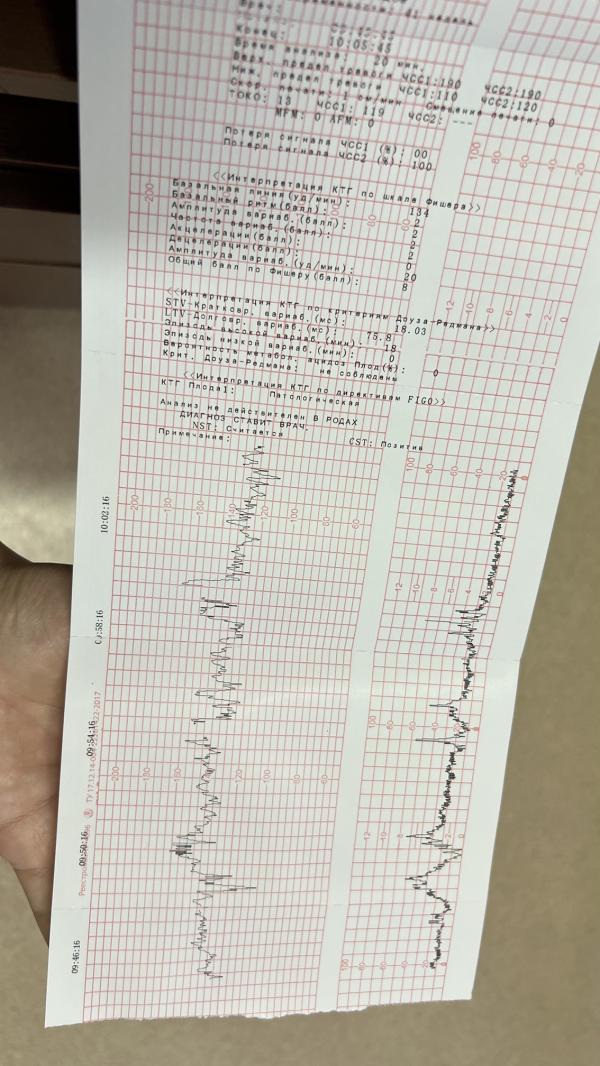 Конец:
10:05:45
Время анализа: 20 мин.
Верх. предел тревоги ЧСС1:190 ЧСС2:190
Ниж. предел тревоги ЧСС1:110 ЧСС2:120
Скор. печати: 1 см/мин Смещение печати: 0
ТОКО: 13 ЧСС1: 119 ЧСС2: ---
MFM: 0 AFM: 0
Потеря сигнала ЧСС1 (%): 00
Потеря сигнала ЧСС2 (%): 100
<<Интерпретация КТГ по шкале Фишера>>
Базальная линия(уд/мин): 134
Базальный ритм(балл): 2
Амплитуда вариаб.(балл): 2
Частота вариаб.(балл): 2
Акцелерации(балл): 2
Децелерации(балл): 0
Амплитуда вариаб.(уд/мин): 20
Общий балл по Фишеру(балл): 8
<<Интерпретация КТГ по критериям Доуза-Редмана>>
STV-Кратковр. вариаб.(мс): 18.03
LTV-Долговр. вариаб.(мс): 75.8
Эпизоды высокой вариаб.(мин): 18
Эпизоды низкой вариаб.(мин): 0
Вероятность метабол. ацидоз Плод(%): 0
Крит. Доуза-Редмана: не соблюдены
<<Интерпретация КТГ по директивам FIGO>>
КТГ Плода1: Патологическая
Анализ не действителен В РОДАХ
ДИАГНОЗ СТАВИТ ВРАЧ.
NST: Считается CST: Позитив
Примечание:
10:02:16
09:58:16
09:54:16
09:50:16
09:46:16